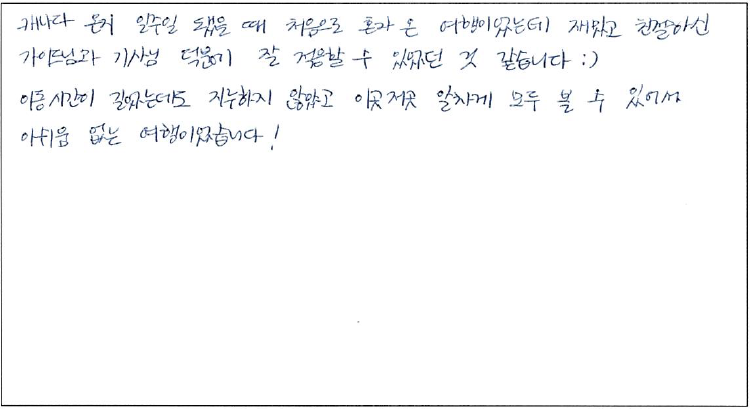 캐나다 온지 일주일 됐을 때 처음으로 혼자 온 여행이었는데 재밌고 친절하신
가이드님과 기사님 덕분에 잘 적응할 수 있었던 것 같습니다 :)
이동시간이 길었는데도 지루하지 않았고 이곳저곳 알차게 모두 볼 수 있어서
아쉬움 없는 여행이었습니다!